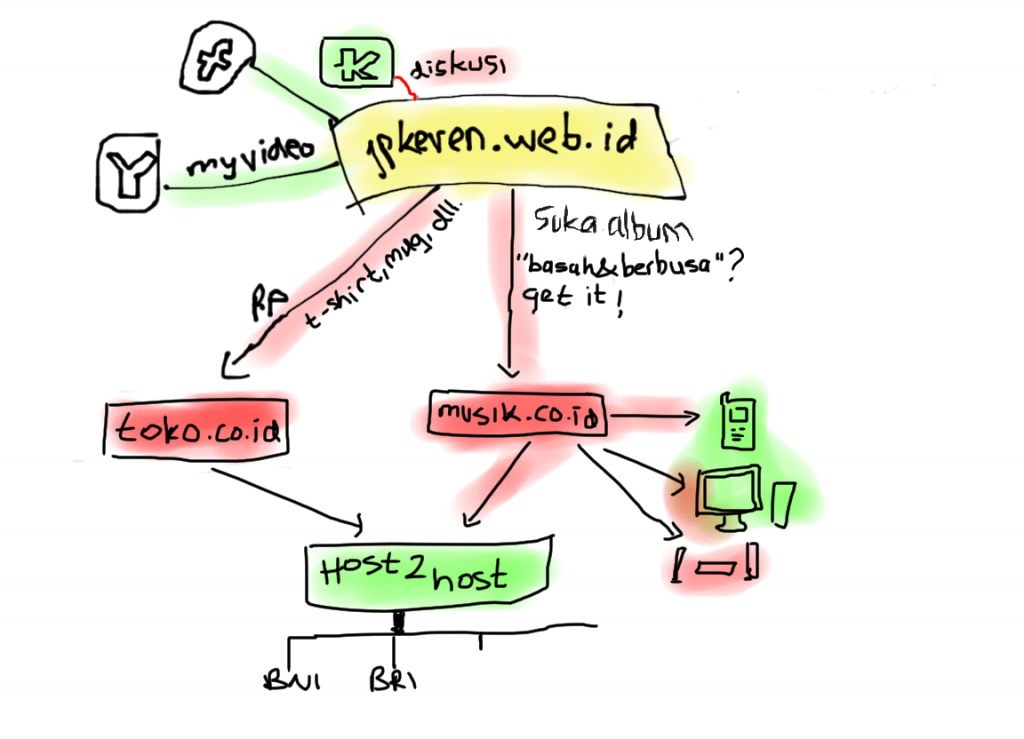 f
K
diskusi
jpkeren.web.id
Y
myvideo
RP
t-shirt, mug, dll.
Suka album
"basah&berbusa"?
get it!
toko.co.id
musik.co.id
Host2host
BNI
BRI